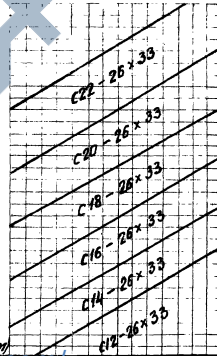 C22-26×33
C20-26×33
C18-26×33
C16-26×33
C14-26×33
C12-26×33